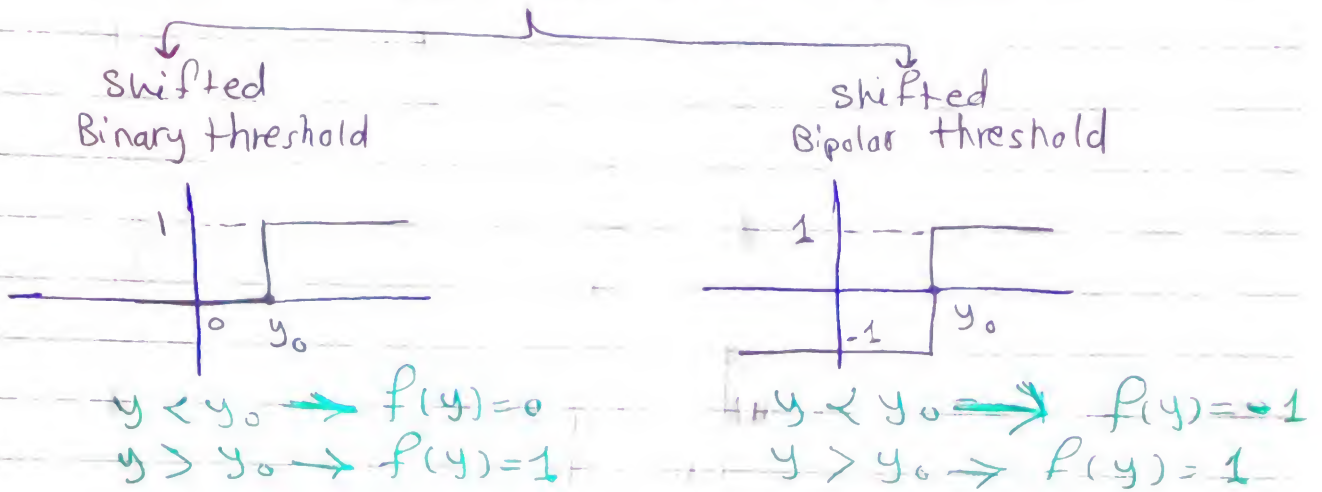 shifted
Binary threshold
1
0
y₀
y < y₀ → f(y)=0
y > y₀ → f(y)=1
shifted
Bipolar threshold
1
-1
y₀
y < y₀ → f(y)=-1
y > y₀ → f(y)=1